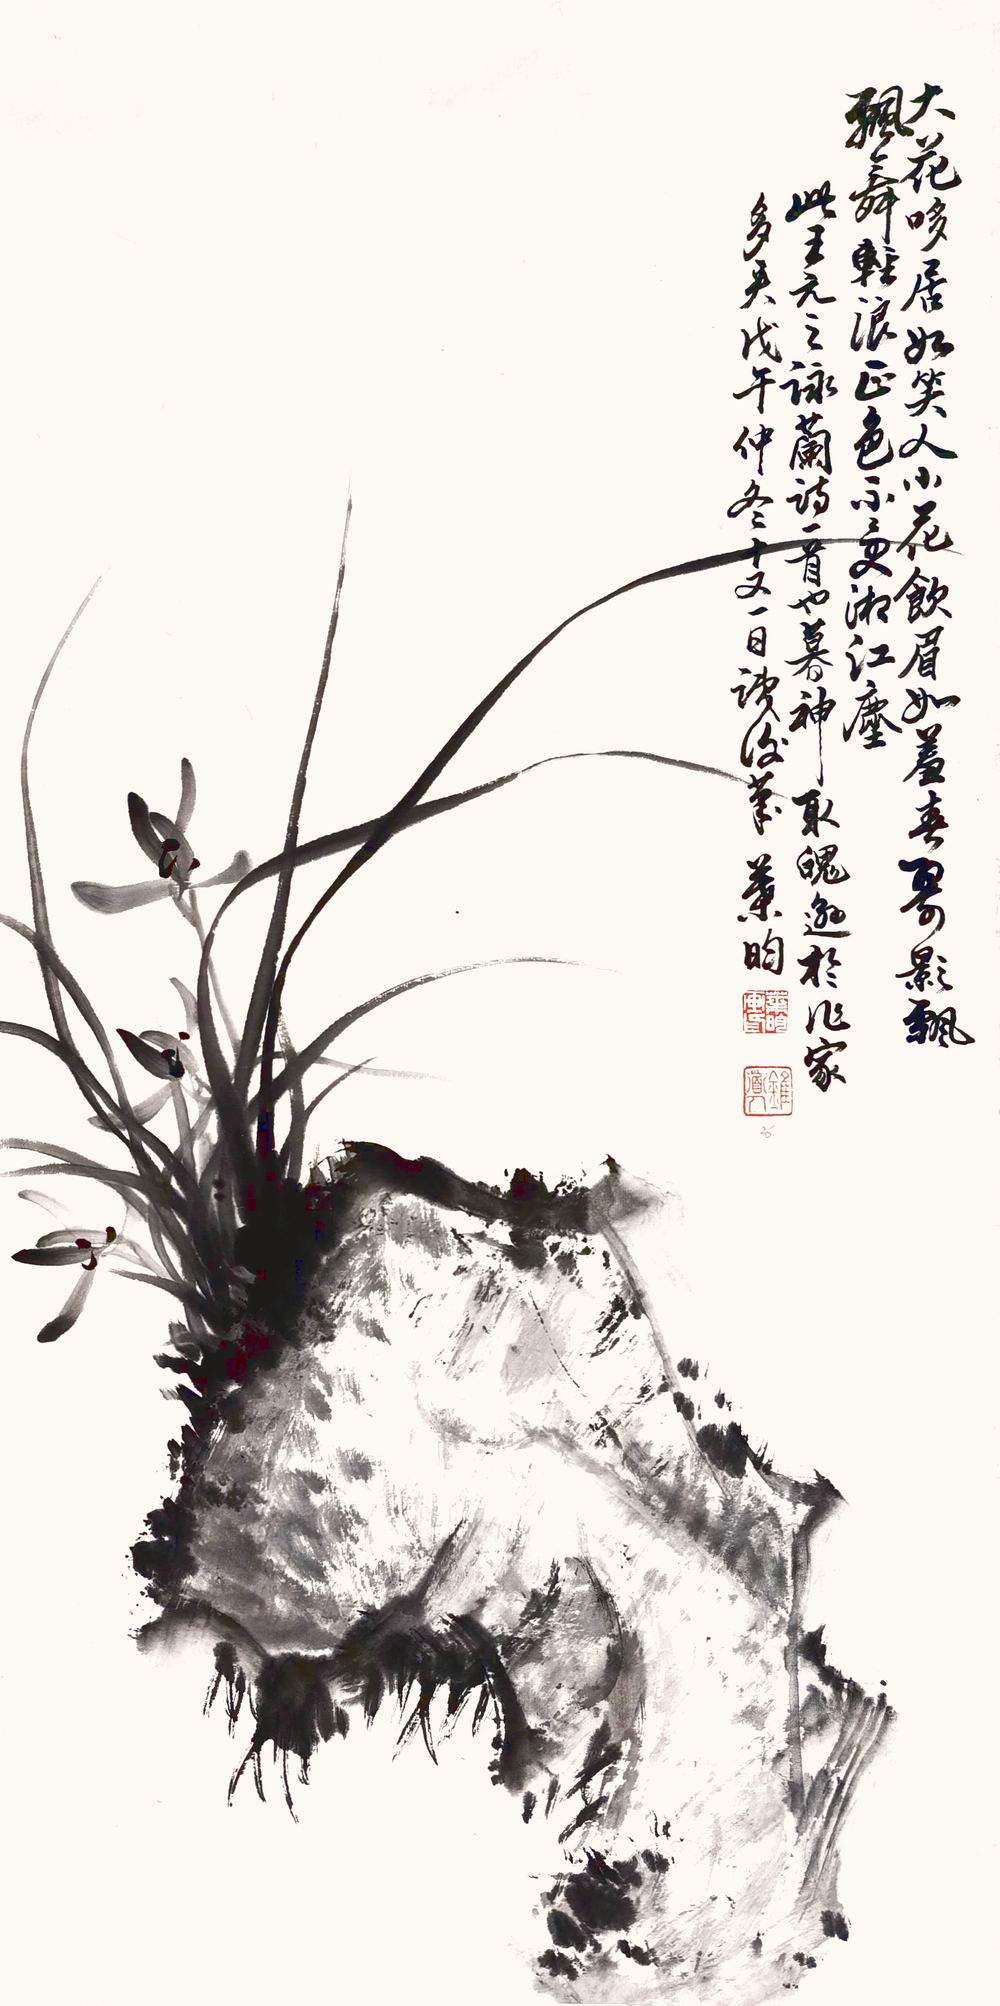 大花哆居如笑人小花飲眉如羞春弱影飄
飄舞輕浪正色不受湘江塵
此王元之詠蘭詩一首也暮神取魄遜於作家
多矣戊午仲冬二十又一日讀後草 葉昀
葉昀